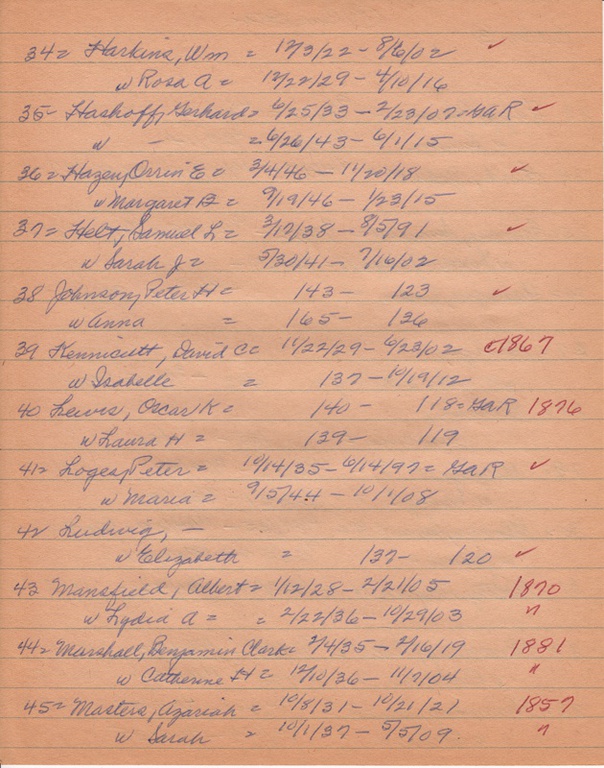 34 = Harkins, Wm = 12/3/22 - 8/6/02 ✓
w Rosa A = 12/22/29 - 4/10/16
35 - Hashoff, Gerhard = 6/25/33 - 2/23/07 = GAR ✓
w - = 6/26/43 - 6/1/15
36 = Hazen, Orrin E = 3/4/46 - 11/20/18 ✓
w Margaret B = 9/19/46 - 1/23/15
37 = Helt, Samuel L = 3/17/38 - 8/5/91 ✓
w Sarah J = 5/30/41 - 7/16/02
38 Johnson, Peter H = 143 - 123 ✓
w Anna = 165 - 136
39 Kennicutt, David C = 11/22/29 - 6/23/02 c1867
w Isabelle = 137 - 10/19/12
40 Lewis, Oscar K = 140 - 118 = GAR 1876
w Laura H = 139 - 119
41 = Loges, Peter = 10/14/35 - 6/14/97 = GAR ✓
w Maria = 9/5/44 - 10/1/08
42 Ludwig, -
w Elizabeth = 137 - 120 ✓
43 Mansfield, Albert = 1/12/28 - 2/21/05 1870
w Lydia A = = 2/22/36 - 10/29/03 "
44 = Marshall, Benjamin Clark = 2/4/35 - 2/16/19 1881
w Catherine H = 12/10/36 - 11/7/04 "
45 = Masters, Azariah = 10/8/31 - 10/21/21 1857
w Sarah = 10/1/37 - 5/5/09. "